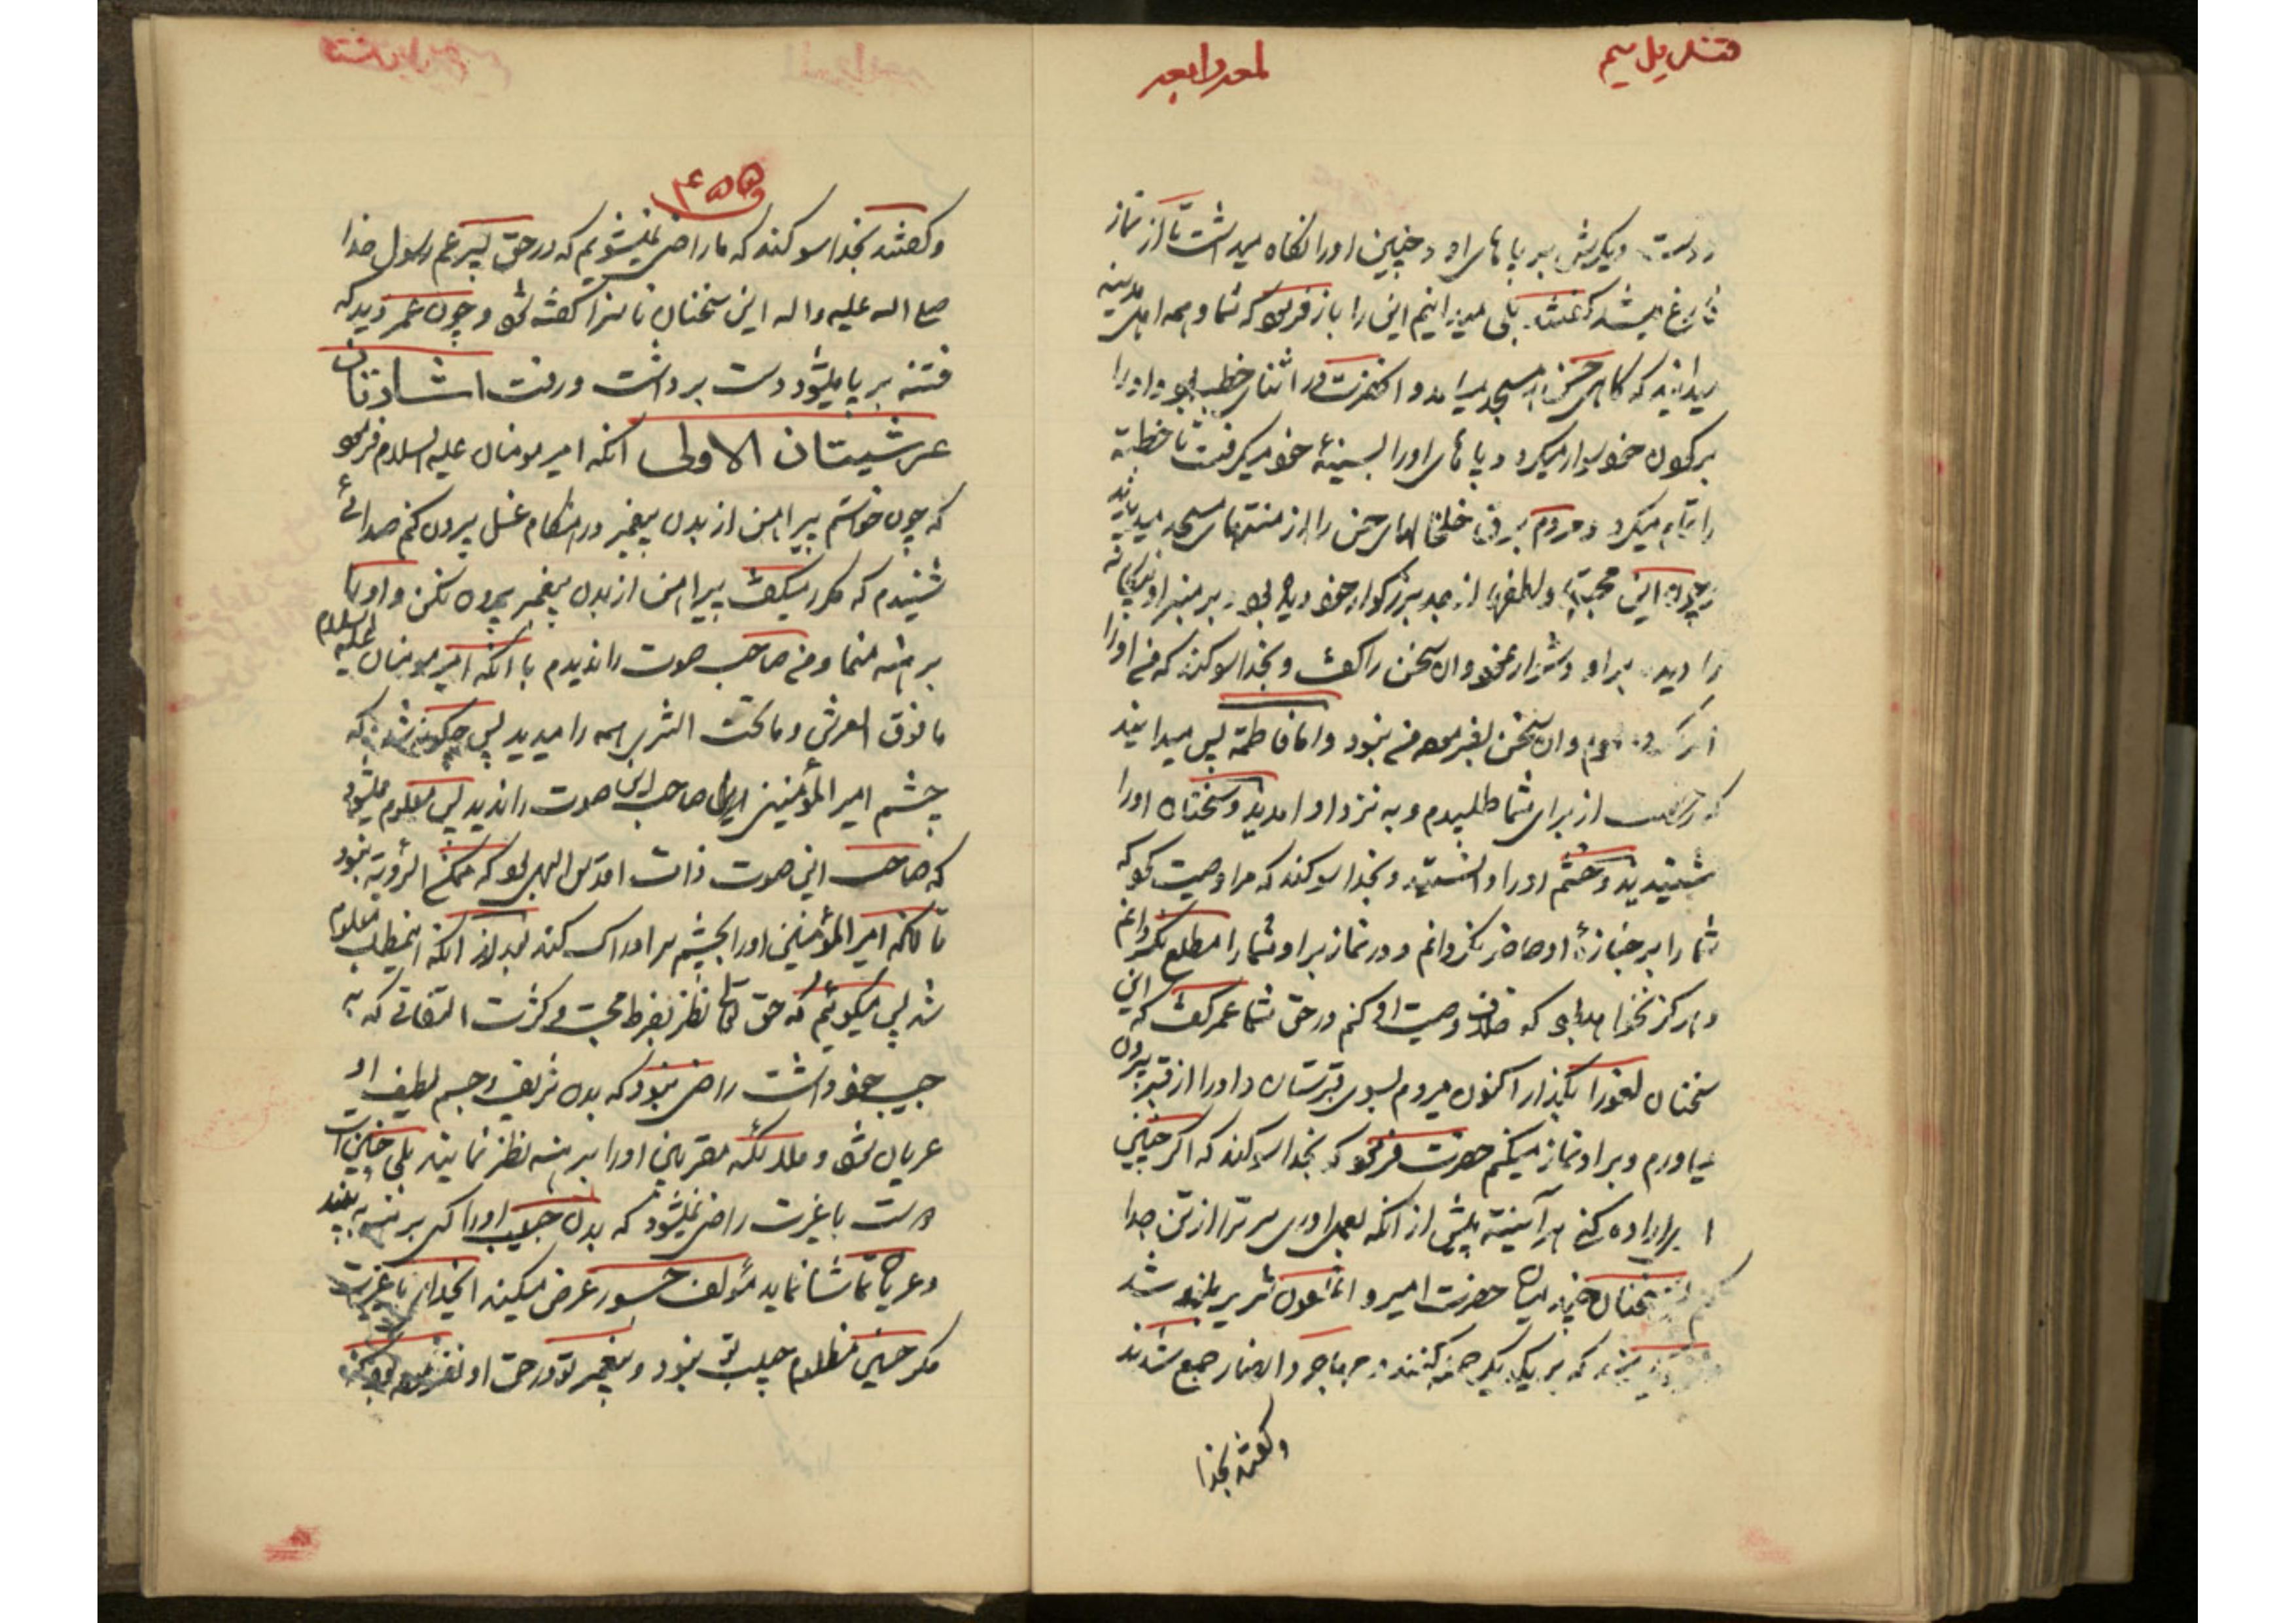 قندیل سیم
لمعه رابعه
دست دیگرش بر پاهای او و چنین او را نگاه میداشت تا از نماز
فارغ میشد گفتند بلی میدانیم این را باز فرمود که شما و همه اهل مدینه
میدانید که گاهی حسن به مسجد میامد و آنحضرت در اثنای خطبه بود و او را
بر گردن خود سوار میکرد و پاهای او را بسینهٔ خود میگرفت تا خطبه
را تمام میکرد و مردم برق خلخالهای حسن را از منتهای مسجد میدیدند
چون این محبتها و لطفها از جد بزرگوار خود دیده بود بر منبر او بیگانه
را دید بر او دشوار نمود و آن سخن را گفت و بخدا سوگند که من او را
امر نکرده بودم و آن سخن بفرموده من نبود و اما فاطمه پس میدانید
که رخصت از برای شما طلبیدم و به نزد او آمدید و سخنان او را
شنیدید و خشم او را دانستید و بخدا سوگند که مرا وصیت کرد که
شما را بر جنازهٔ او حاضر نگردانم و در نماز بر او شما را مطلع نگردانم
و هرگز نخواهد بود که خلاف وصیت او کنم در حق شما عمر گفت که این
سخنان لغو را بگذار اکنون میروم بسوی قبرستان و او را از قبر بیرون
میاورم و بر او نماز میکنم حضرت فرمود که بخدا سوگند که اگر چنین
اراده کنی هر آینه پیش از آنکه بعمل آوری سر ترا از تن جدا
میکنم و سخنان چند میان حضرت امیر و آن ملعون شریر بلند شد
که بر یکدیگر حمله کنند مهاجر و انصار جمع شدند
و گفتند بخدا
۴۵۵
و گفتند بخدا سوگند که ما راضی نمیشویم که در حق پسر عم رسول خدا
صلی الله علیه و اله این سخنان ناسزا گفته شود و چون عمر دید که
فتنه بر پا میشود دست برداشت و رفت اشارتان
عرشیتان الاولی آنکه امیر مومنان علیه السلام فرمود
که چون خواستم پیراهن از بدن پیغمبر در هنگام غسل بیرون کنم صدائی
شنیدم که مکرر میگفت پیراهن از بدن پیغمبر بیرون نکن و او را
برهنه منما و من صاحب صوت را ندیدم با آنکه امیر مومنان علیه السلام
ما فوق العرش و ما تحت الثری همه را میدید پس چگونه شد که
چشم امیر المؤمنین صاحب این صوت را ندید پس معلوم میشود
که صاحب این صوت ذات اقدس الهی بود که ممکن الرؤیة نبود
تا آنکه امیر المؤمنین او را بچشم سر ادراک کند بعد از آنکه اینمطلب معلوم
شد پس میگوئیم که حق تعالی نظر بفرط محبت و کثرت التفاتی که به
حبیب خود داشت راضی نبود که بدن شریف و جسم لطیف او
عریان شود و ملائکه مقربین او را برهنه نظر نمایند بلی چنین است
دوست با غیرت راضی نمیشود که بدن حبیب او را کسی برهنه به بیند
و عریان تماشا نماید مؤلف جسور عرض میکند ایخدای با غیرت
مگر حسین مظلوم حبیب تو نبود و پیغمبر تو در حق او نفرموده بود که